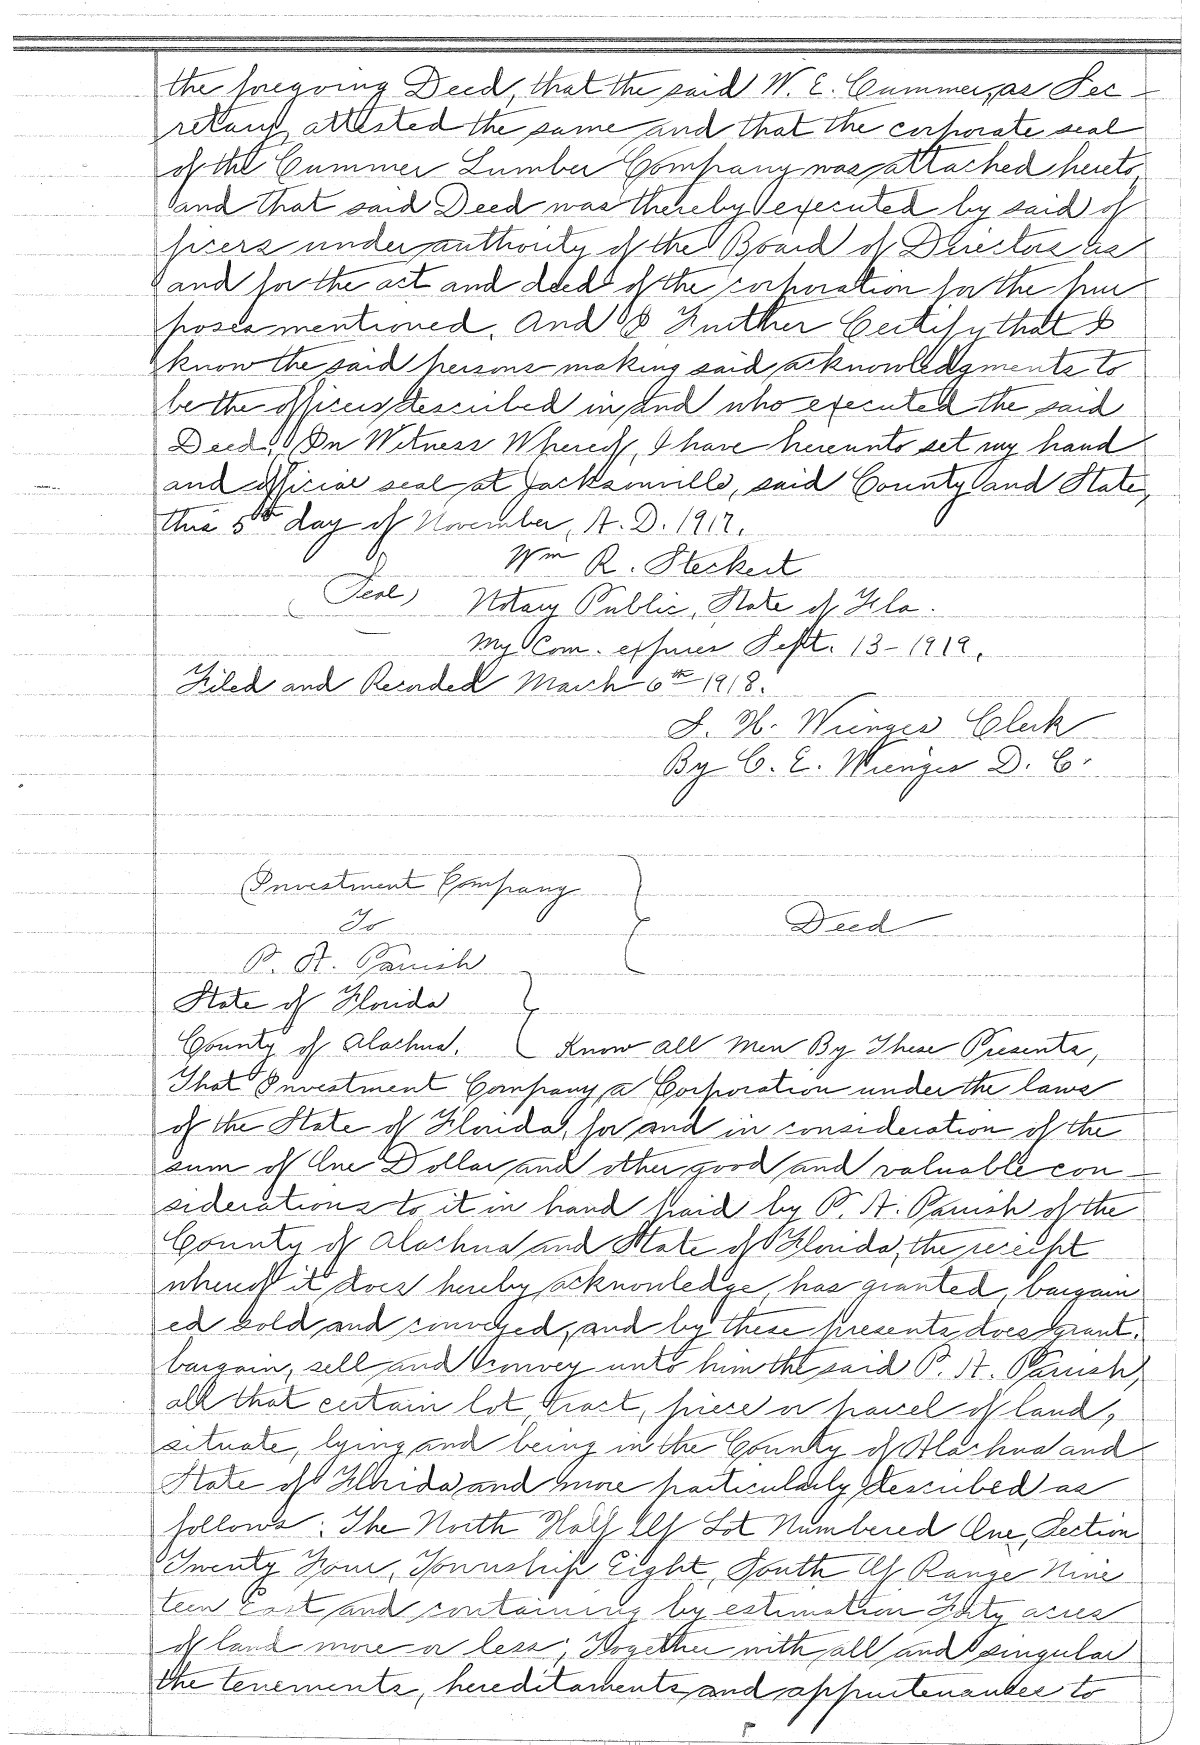 the foregoing Deed, that the said W. E. Cummer, as Sec-
retary, attested the same and that the corporate seal
of the Cummer Lumber Company was attached hereto,
and that said Deed was thereby executed by said of
ficers under authority of the Board of Directors as
and for the act and deed of the corporation for the pur
poses mentioned. And I Further Certify that I
know the said persons making said acknowledgments to
be the officers described in and who executed the said
Deed. In Witness Whereof, I have hereunto set my hand
and official seal at Jacksonville, said County and State,
this 5th day of November, A. D. 1917.
Wm R. Steckert
(Seal) Notary Public, State of Fla.
My Com. expires Sept. 13-1919.
Filed and Recorded March 6th 1918.
S. H. Wienges Clerk
By C. E. Wienges D. C.
Investment Company
To
Deed
P. A. Parrish
State of Florida
County of Alachua. Know All Men By These Presents,
That Investment Company a Corporation under the laws
of the State of Florida, for and in consideration of the
sum of One Dollar and other good and valuable con-
siderations to it in hand paid by P. A. Parrish of the
County of Alachua and State of Florida, the receipt
whereof it does hereby acknowledge, has granted, bargain
ed sold and conveyed, and by these presents does grant.
bargain, sell and convey unto him the said P. A. Parrish,
all that certain lot, tract, piece or parcel of land,
situate, lying and being in the County of Alachua and
State of Florida and more particularly described as
follows: The North Half Of Lot Numbered One, Section
Twenty Four, Township Eight, South Of Range Nine
teen East and containing by estimation acres
of land more or less; Together with all and singular
the tenements, hereditaments and appurtenances to